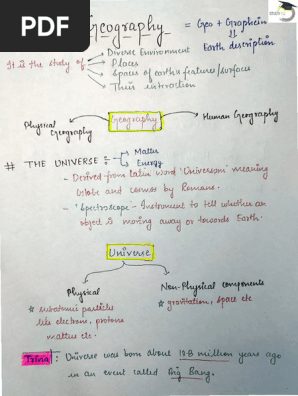 PDF
Geography = Geo + Graphein
Earth description
It is the study of
Diverse Environment
Places
Spaces of earth's features/surfaces
Their interaction
Physical Geography
Geography
Human Geography
# THE UNIVERSE :-
Matter
Energy
- Derived from latin word 'Universum' meaning
globe and cosmos by Romans.
- 'Spectroscope' - Instrument to tell whether an
object is moving away or towards Earth.
Universe
Physical
Non-Physical components
* subatomic particles
like electrons, protons
matter etc.
* gravitation, space etc
Trivia : Universe was born about 13.8 million years ago
in an event called Big Bang.